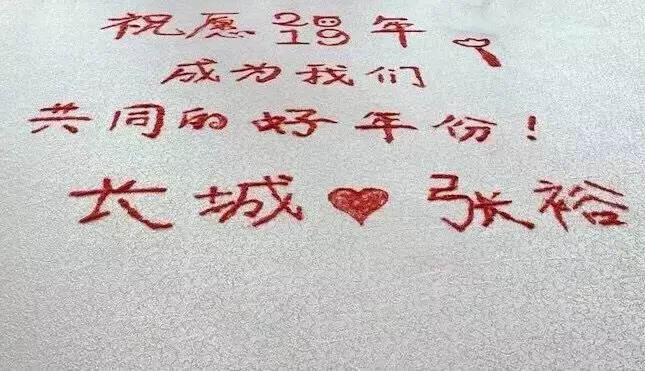 祝愿2019年
成为我们
共同的好年份!
长城❤张裕